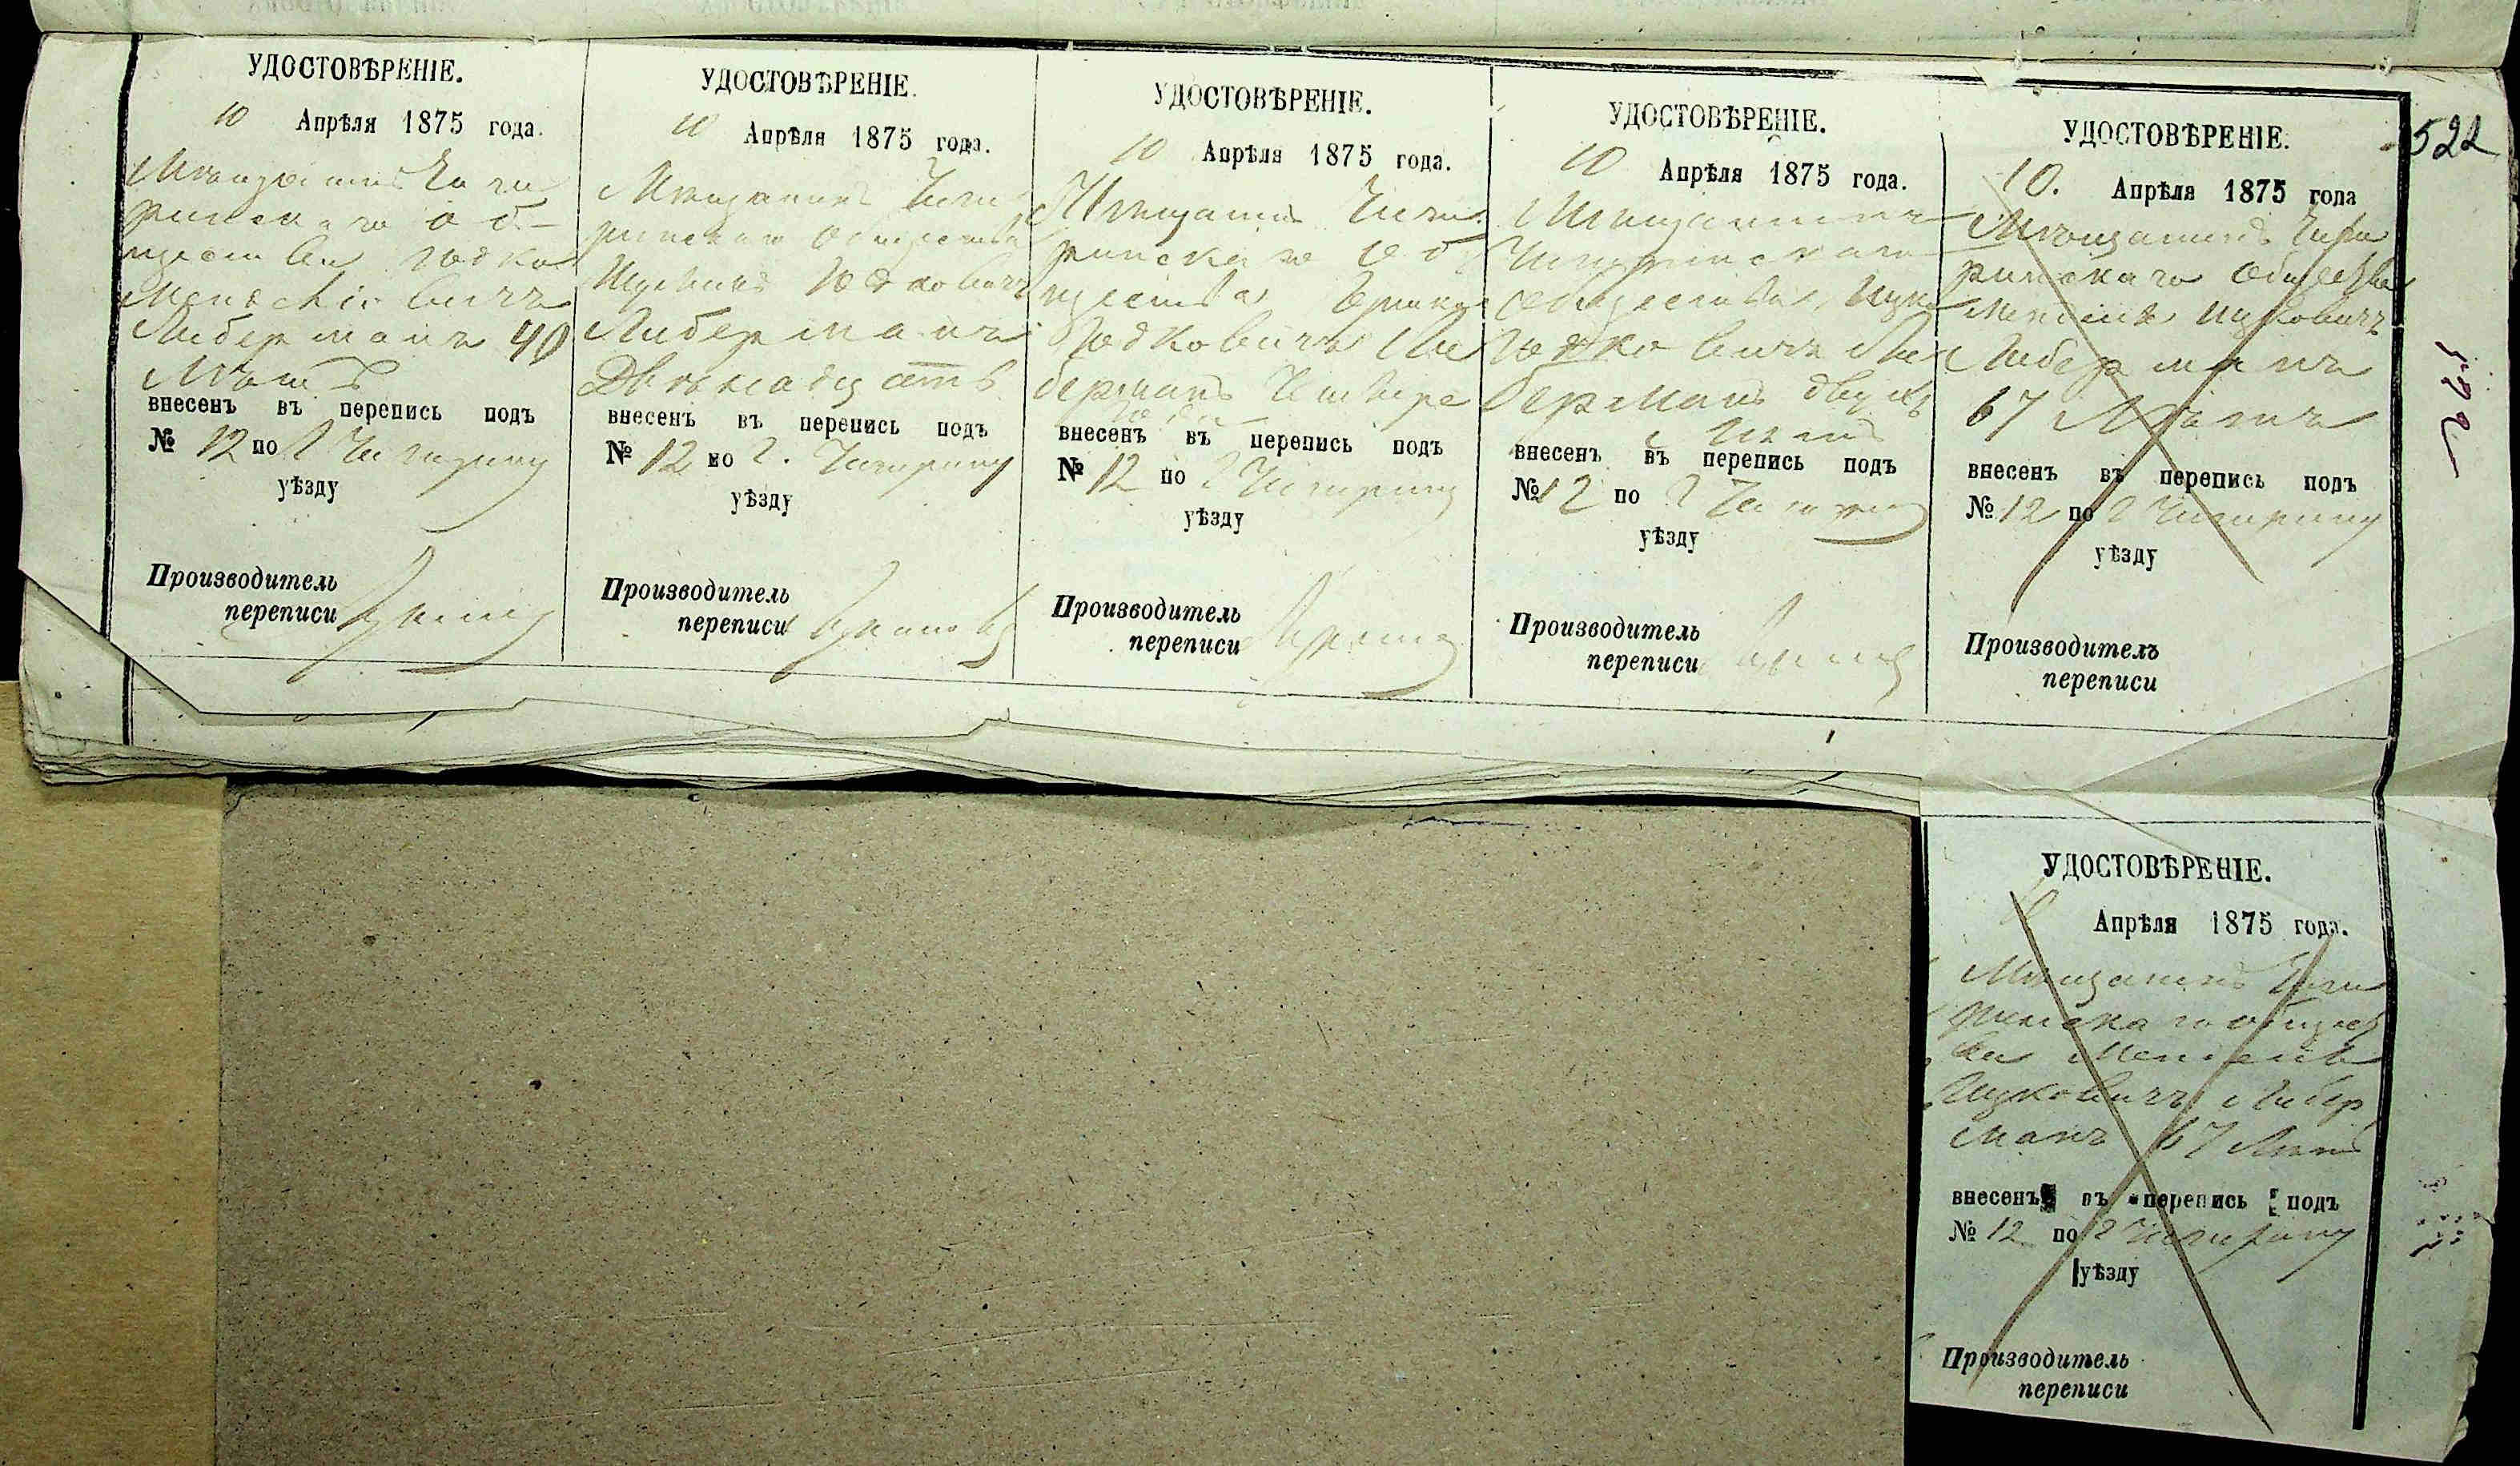 УДОСТОВѢРЕНІЕ.
10 Апрѣля 1875 года.
Мѣщанинъ Чиги
ринскаго об-
щества Юдко
Либерманъ 40
Лѣтъ
внесенъ въ перепись подъ
№ 12 по г Чигирину
уѣзду
Производитель
переписи
УДОСТОВѢРЕНІЕ.
10 Апрѣля 1875 года.
Мѣщанинъ Чиги
ринскаго Общества
Юдковичъ
Либерманъ
Двѣнадцать
внесенъ въ перепись подъ
№ 12 по г. Чигирину
уѣзду
Производитель
переписи
УДОСТОВѢРЕНІЕ.
10 Апрѣля 1875 года.
Мѣщанинъ Чиги
ринскаго Об
щества
Юдковичъ Ли
берманъ
внесенъ въ перепись подъ
№ 12 по г Чигирину
уѣзду
Производитель
переписи
УДОСТОВѢРЕНІЕ.
10 Апрѣля 1875 года.
Мѣщанинъ
Чигиринскаго
общества Ицко
Юдковичъ Ли
берманъ двухъ
лѣтъ
внесенъ въ перепись подъ
№ 12 по г Чигирину
уѣзду
Производитель
переписи
УДОСТОВѢРЕНІЕ.
10. Апрѣля 1875 года
Мѣщанинъ Чиги
ринскаго общества
Мендель Ицковичъ
Либерманъ
67 Лѣтъ
внесенъ въ перепись подъ
№ 12 по г Чигирину
уѣзду
Производитель
переписи
522
УДОСТОВѢРЕНІЕ.
10 Апрѣля 1875 года.
Мѣщанинъ Чиги
ринскаго общест
ва Мендель
Ицковичъ Либер
манъ 67 Лѣтъ
внесенъ въ перепись подъ
№ 12 по г Чигирину
уѣзду
Производитель
переписи